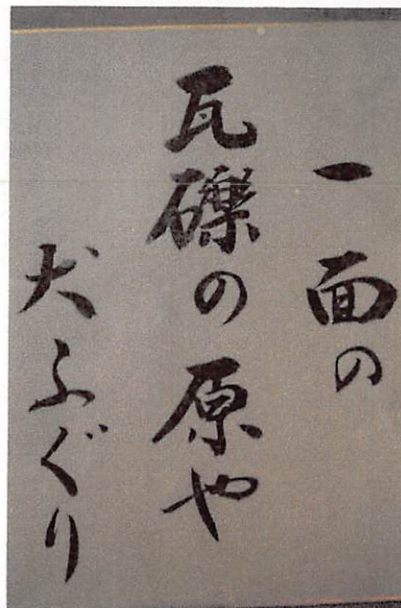 一面の
瓦礫の原や
犬ふぐり